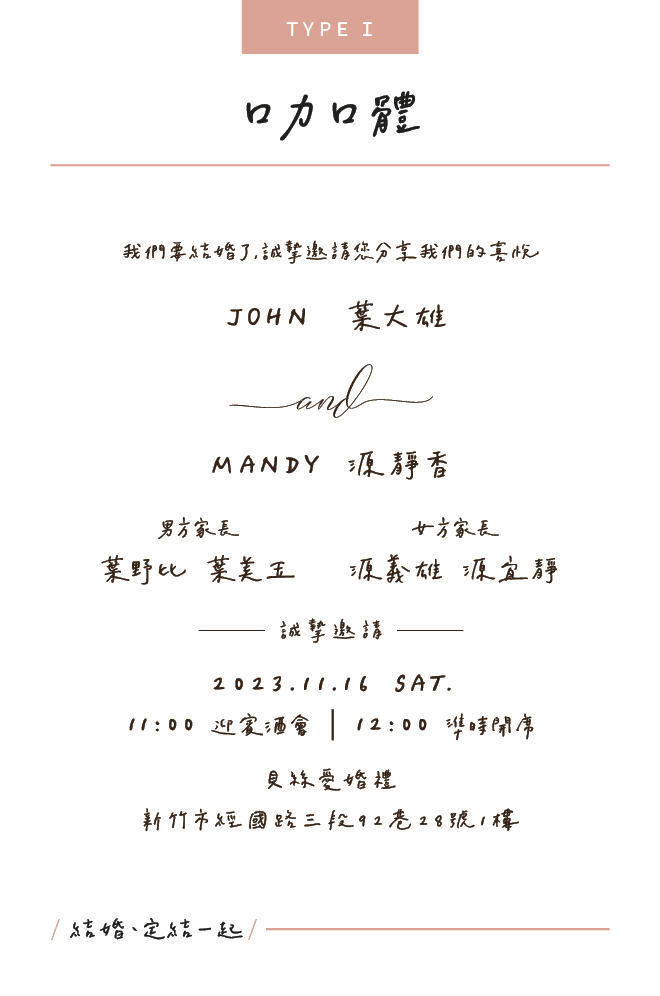 TYPE I
口力口體
我們要結婚了,誠摯邀請您分享我們的喜悅
JOHN 葉大雄
and
MANDY 源靜香
男方家長 女方家長
葉野比 葉美玉 源義雄 源宜靜
誠摯邀請
2023.11.16 SAT.
11:00 迎賓酒會 | 12:00 準時開席
貝絲愛婚禮
新竹市經國路三段92巷28號1樓
/ 結婚、定結一起 /